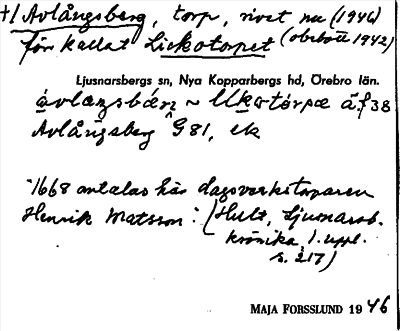 +1 Avlångsberg, torp, rivet nu (1946)
förr kallat Lickotorpet (obebott 1942)
Ljusnarsbergs sn, Nya Kopparbergs hd, Örebro län.
Avlångsberg G81, ek
1668 antalas här dagsverkstorparen
Henrik Matsson: (Hult, Ljusnarsb.
krönika, 1. uppl.
s. 217)
MAJA FORSSLUND 1946